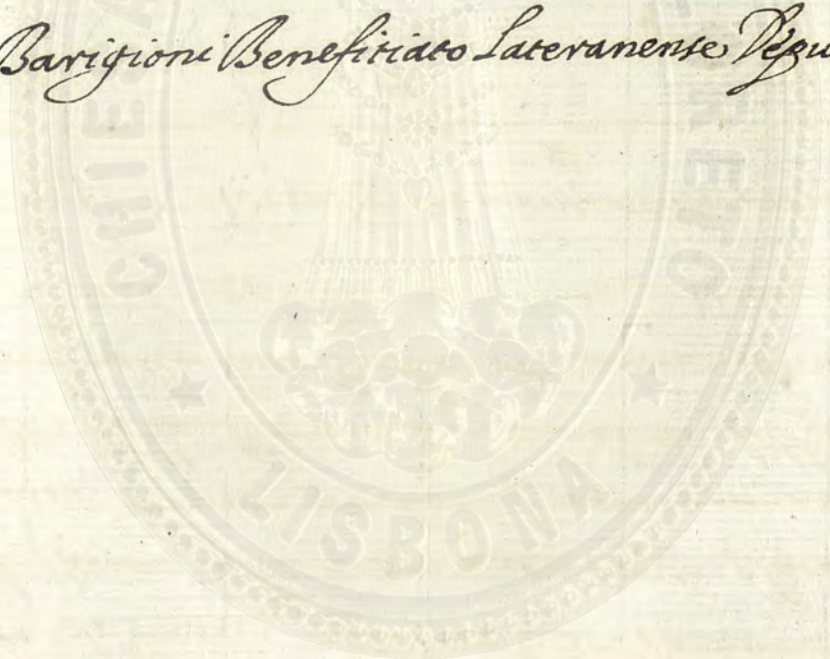 Barigioni Benefitiato Lateranense Depu
CHIE
RETO
LISBONA